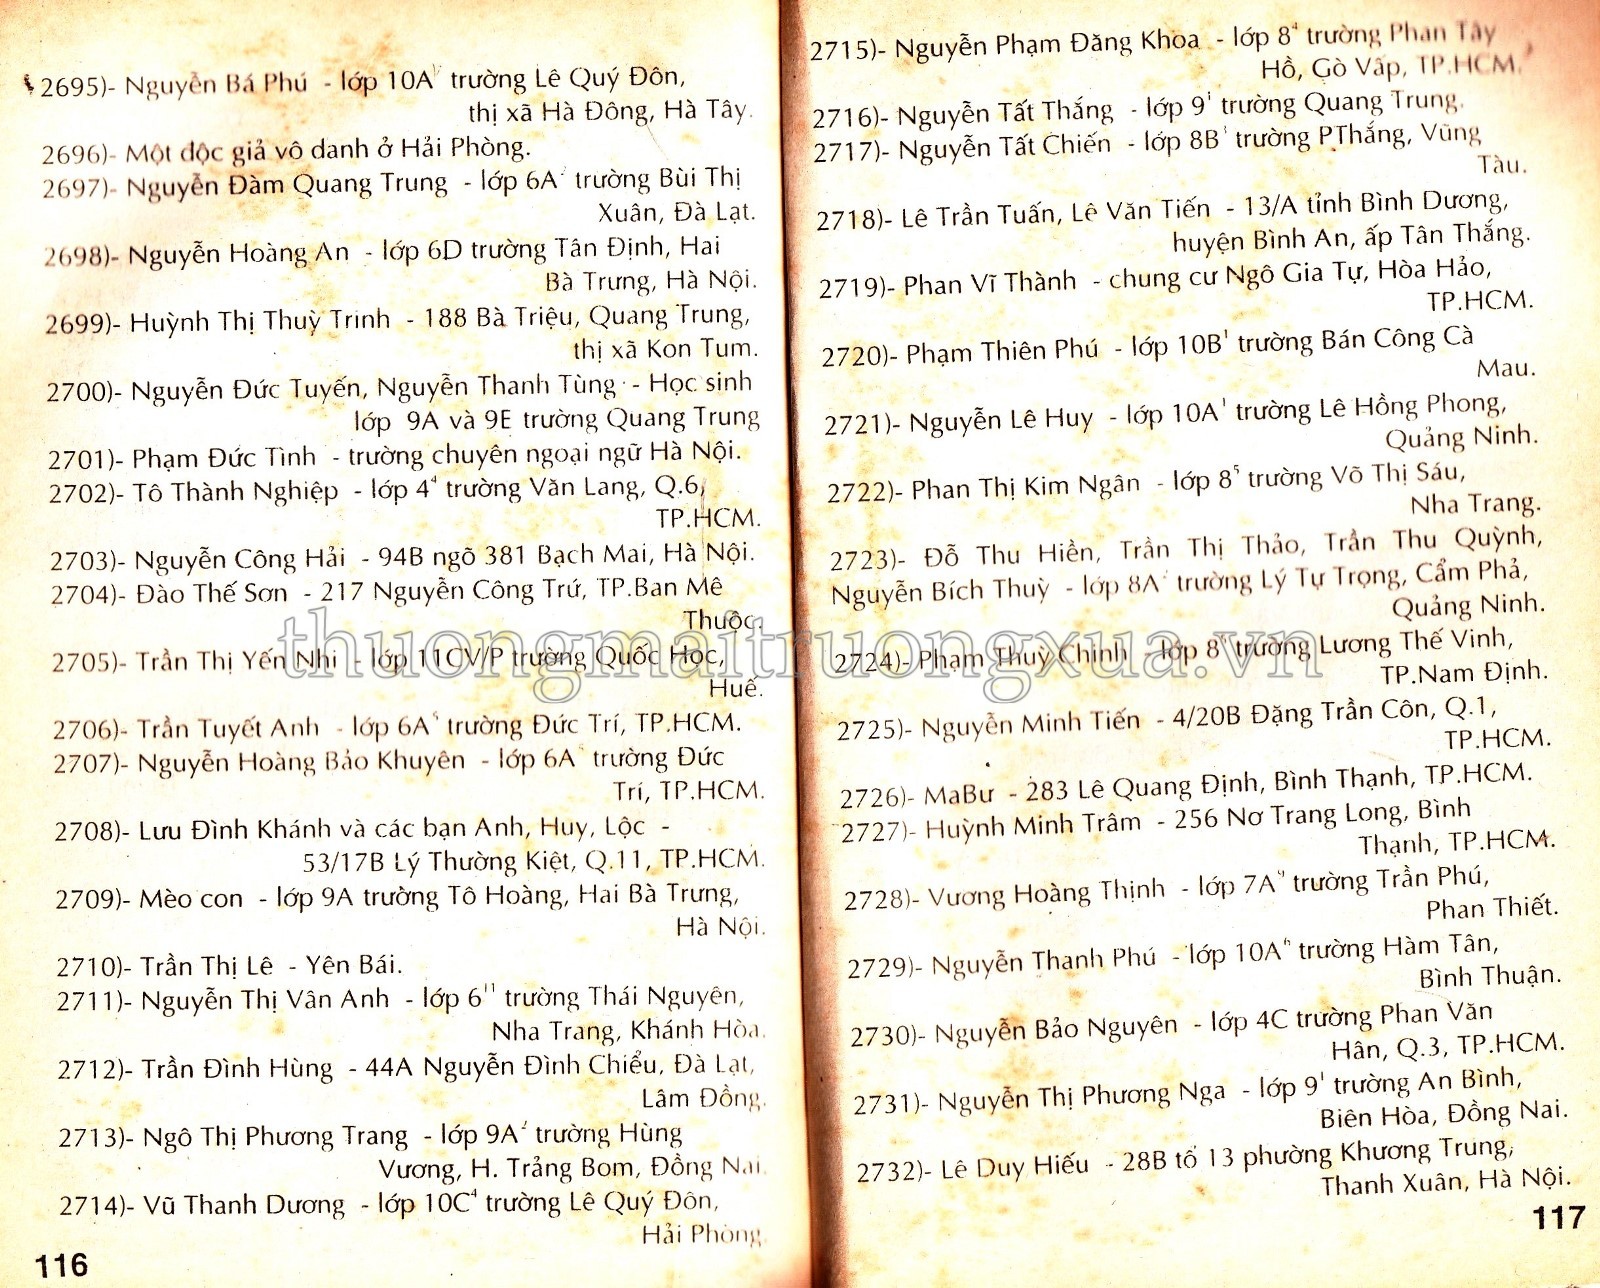 2695)- Nguyễn Bá Phú - lớp 10A¹ trường Lê Quý Đôn,
thị xã Hà Đông, Hà Tây.
2696)- Một độc giả vô danh ở Hải Phòng.
2697)- Nguyễn Đàm Quang Trung - lớp 6A² trường Bùi Thị
Xuân, Đà Lạt.
2698)- Nguyễn Hoàng An - lớp 6D trường Tân Định, Hai
Bà Trưng, Hà Nội.
2699)- Huỳnh Thị Thuỳ Trinh - 188 Bà Triệu, Quang Trung,
thị xã Kon Tum.
2700)- Nguyễn Đức Tuyến, Nguyễn Thanh Tùng - Học sinh
lớp 9A và 9E trường Quang Trung
2701)- Phạm Đức Tình - trường chuyên ngoại ngữ Hà Nội.
2702)- Tô Thành Nghiệp - lớp 4⁴ trường Văn Lang, Q.6,
TP.HCM.
2703)- Nguyễn Công Hải - 94B ngõ 381 Bạch Mai, Hà Nội.
2704)- Đào Thế Sơn - 217 Nguyễn Công Trứ, TP.Ban Mê
Thuộc.
2705)- Trần Thị Yến Nhi - lớp 11CV/P trường Quốc Học,
Huế.
2706)- Trần Tuyết Anh - lớp 6A⁵ trường Đức Trí, TP.HCM.
2707)- Nguyễn Hoàng Bảo Khuyên - lớp 6A trường Đức
Trí, TP.HCM.
2708)- Lưu Đình Khánh và các bạn Anh, Huy, Lộc -
53/17B Lý Thường Kiệt, Q.11, TP.HCM.
2709)- Mèo con - lớp 9A trường Tô Hoàng, Hai Bà Trưng,
Hà Nội.
2710)- Trần Thị Lê - Yên Bái.
2711)- Nguyễn Thị Vân Anh - lớp 6¹¹ trường Thái Nguyên,
Nha Trang, Khánh Hòa.
2712)- Trần Đình Hùng - 44A Nguyễn Đình Chiểu, Đà Lạt,
Lâm Đồng.
2713)- Ngô Thị Phương Trang - lớp 9A² trường Hùng
Vương, H. Trảng Bom, Đồng Nai.
2714)- Vũ Thanh Dương - lớp 10C⁴ trường Lê Quý Đôn,
Hải Phòng.
116
2715)- Nguyễn Phạm Đăng Khoa - lớp 8⁴ trường Phan Tây
Hồ, Gò Vấp, TP.HCM.
2716)- Nguyễn Tất Thắng - lớp 9¹ trường Quang Trung.
2717)- Nguyễn Tất Chiến - lớp 8B¹ trường P.Thắng, Vũng
Tàu.
2718)- Lê Trần Tuấn, Lê Văn Tiến - 13/A tỉnh Bình Dương,
huyện Bình An, ấp Tân Thắng.
2719)- Phan Vĩ Thành - chung cư Ngô Gia Tự, Hòa Hảo,
TP.HCM.
2720)- Phạm Thiên Phú - lớp 10B¹ trường Bán Công Cà
Mau.
2721)- Nguyễn Lê Huy - lớp 10A¹ trường Lê Hồng Phong,
Quảng Ninh.
2722)- Phan Thị Kim Ngân - lớp 8⁵ trường Võ Thị Sáu,
Nha Trang.
2723)- Đỗ Thu Hiền, Trần Thị Thảo, Trần Thu Quỳnh,
Nguyễn Bích Thuỳ - lớp 8A² trường Lý Tự Trọng, Cẩm Phả,
Quảng Ninh.
2724)- Phạm Thuỳ Chinh - lớp 8 trường Lương Thế Vinh,
TP.Nam Định.
2725)- Nguyễn Minh Tiến - 4/20B Đặng Trần Côn, Q.1,
TP.HCM.
2726)- MaBư - 283 Lê Quang Định, Bình Thạnh, TP.HCM.
2727)- Huỳnh Minh Trâm - 256 Nơ Trang Long, Bình
Thạnh, TP.HCM.
2728)- Vương Hoàng Thịnh - lớp 7A⁹ trường Trần Phú,
Phan Thiết.
2729)- Nguyễn Thanh Phú - lớp 10A⁶ trường Hàm Tân,
Bình Thuận.
2730)- Nguyễn Bảo Nguyên - lớp 4C trường Phan Văn
Hân, Q.3, TP.HCM.
2731)- Nguyễn Thị Phương Nga - lớp 9¹ trường An Bình,
Biên Hòa, Đồng Nai.
2732)- Lê Duy Hiếu - 28B tổ 13 phường Khương Trung,
Thanh Xuân, Hà Nội.
117
thuongmaitruongxua.vn